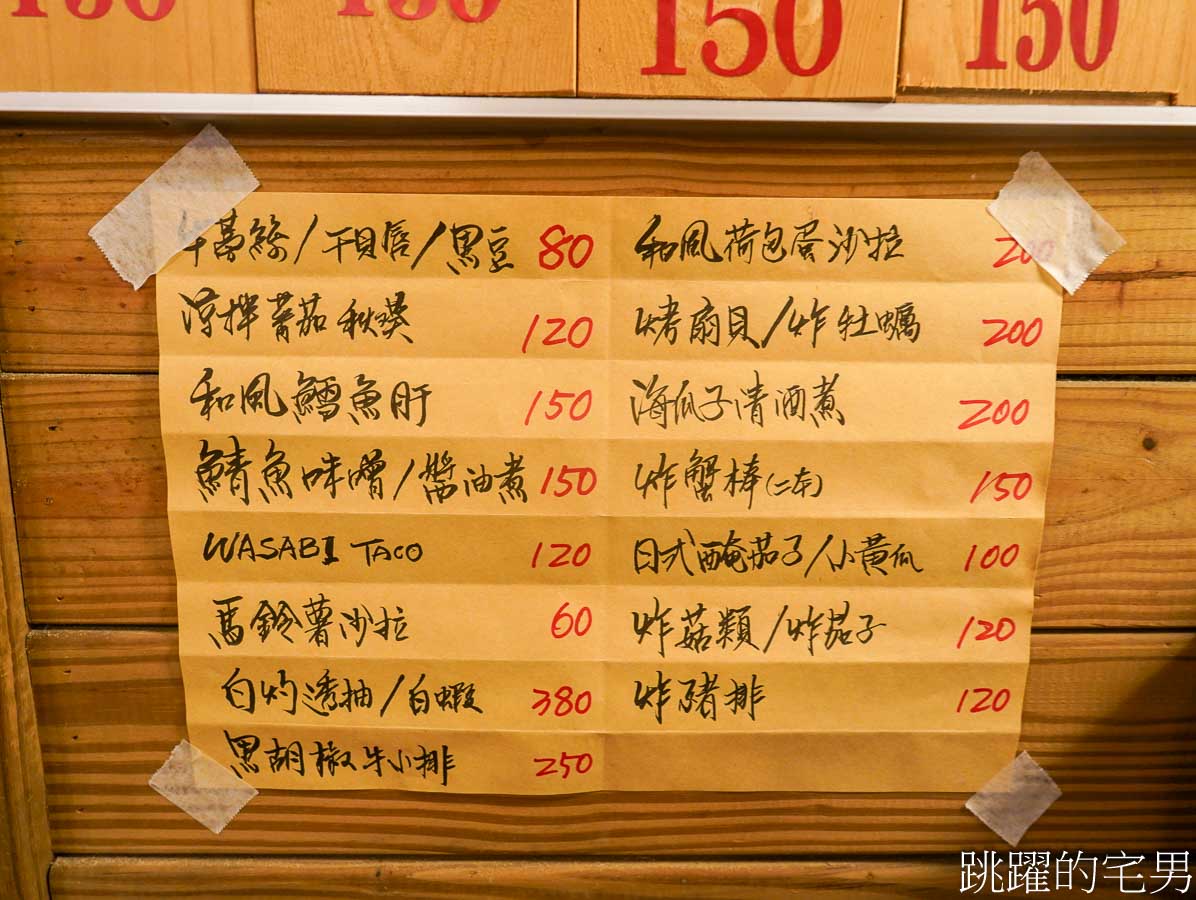 150
150
150
150
牛蒡絲/干貝唇/黑豆 80
涼拌蕃茄秋葵 120
和風鱈魚肝 150
鯖魚味噌/醬油煮 150
WASABI TACO 120
馬鈴薯沙拉 60
白灼透抽/白蝦 380
黑胡椒牛小排 250
和風荷包蛋沙拉 200
烤扇貝/炸牡蠣 200
海瓜子清酒煮 200
炸蟹棒(二本) 150
日式醃茄子/小黃瓜 100
炸菇類/炸茄子 120
炸豬排 120
跳躍的宅男